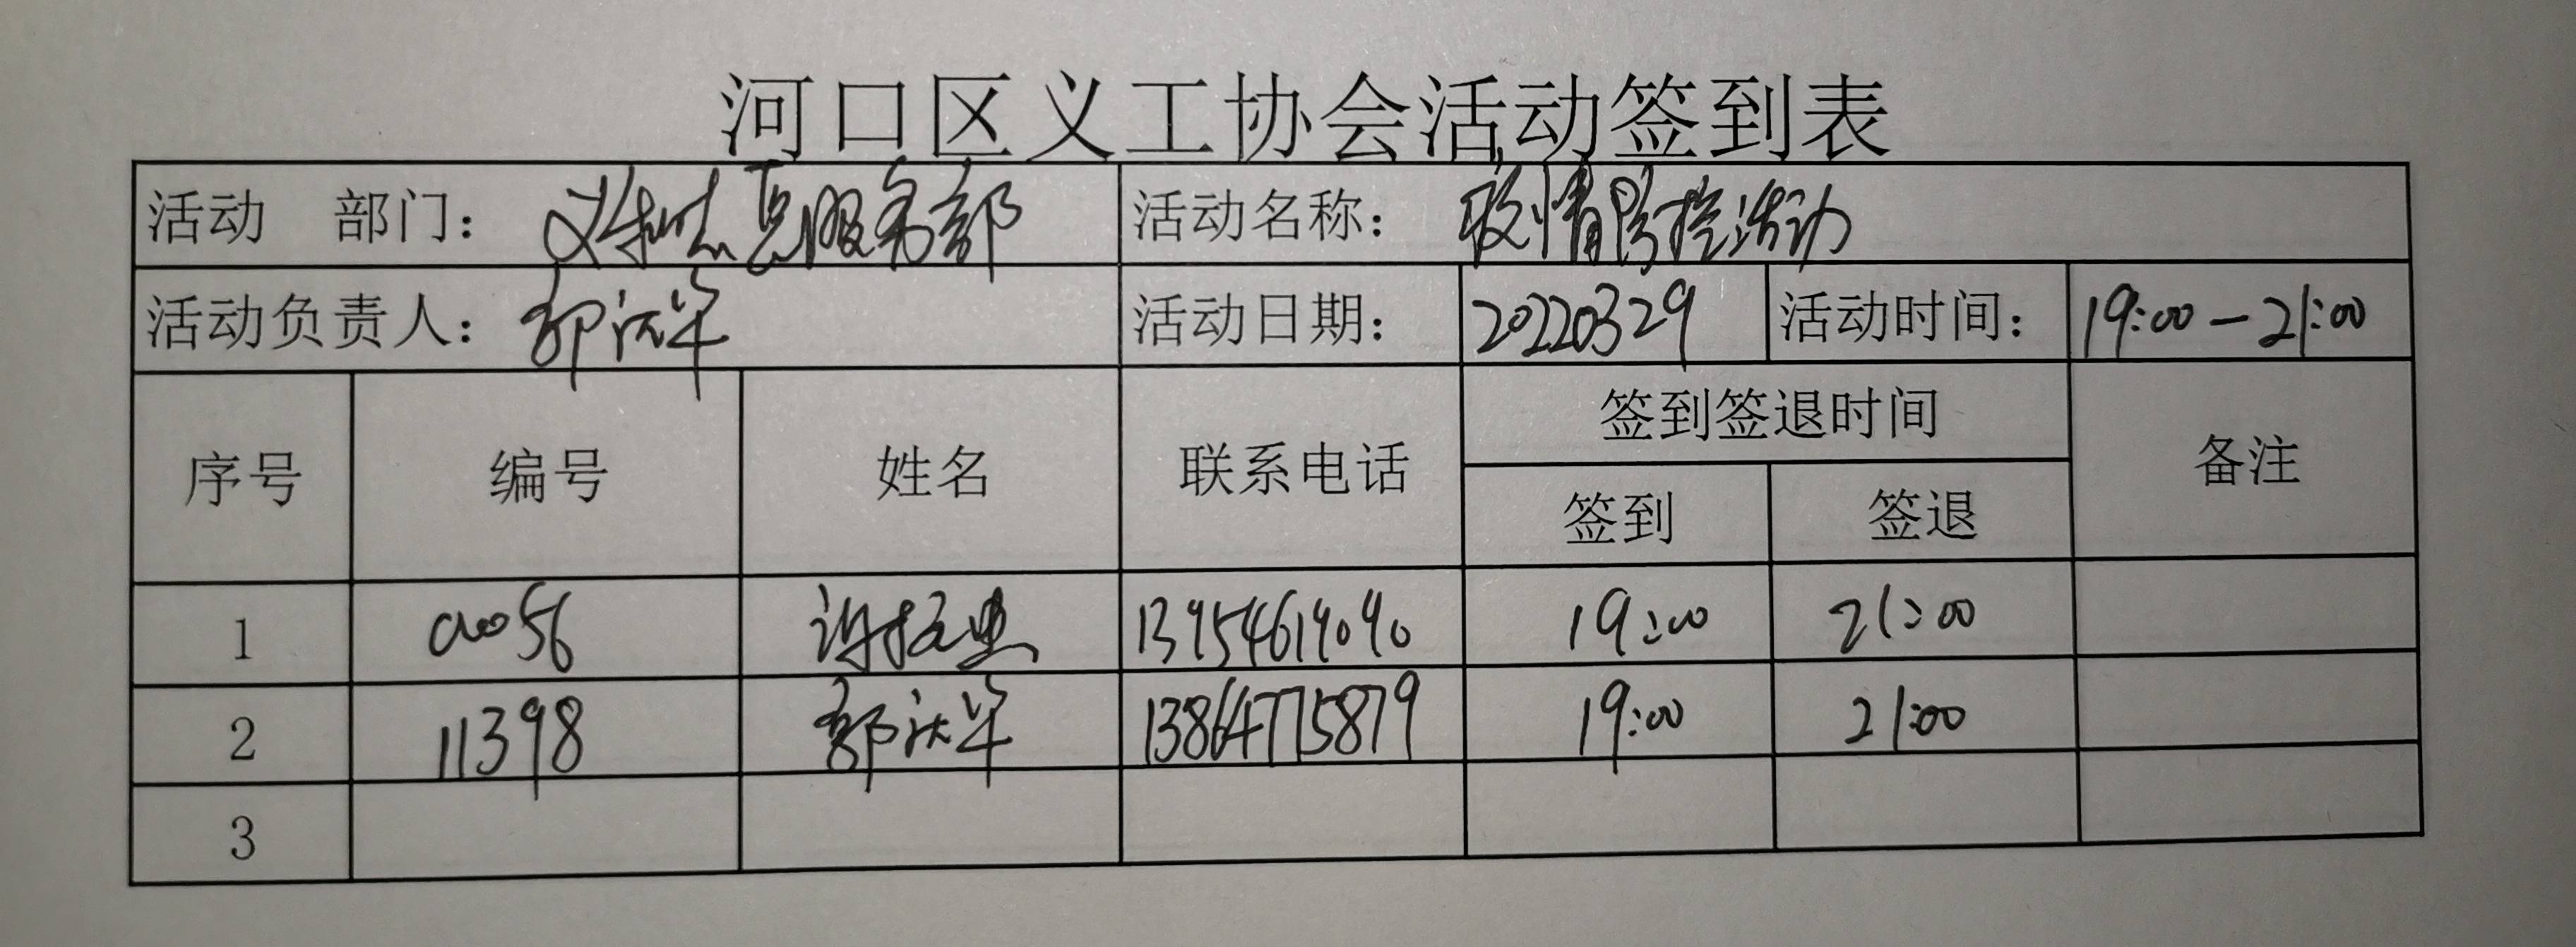 河口区义工协会活动签到表
活动 部门： 服务部 活动名称： 疫情防控活动
活动负责人： 郭 活动日期： 20220329 活动时间： 19:00－21:00
序号 编号 姓名 联系电话 签到签退时间 备注
签到 签退
1 00056 许 13954619090 19:00 21:00
2 11398 郭 13864775879 19:00 21:00
3